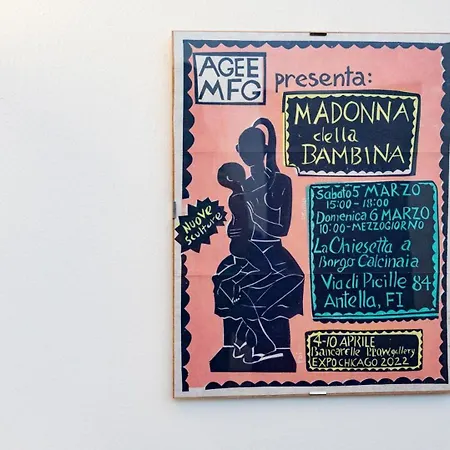 AGEE
MFG
presenta:
MADONNA
della
BAMBINA
Nuove
sculture
Sabato 5 MARZO
15:00-18:00
Domenica 6 MARZO
10:00-MEZZOGIORNO
La Chiesetta a
Borgo Calcinaia
Via di Picille 84
Antella, FI
4-10 APRILE
Bancarelle PROWgallery
EXPO CHICAGO 2022